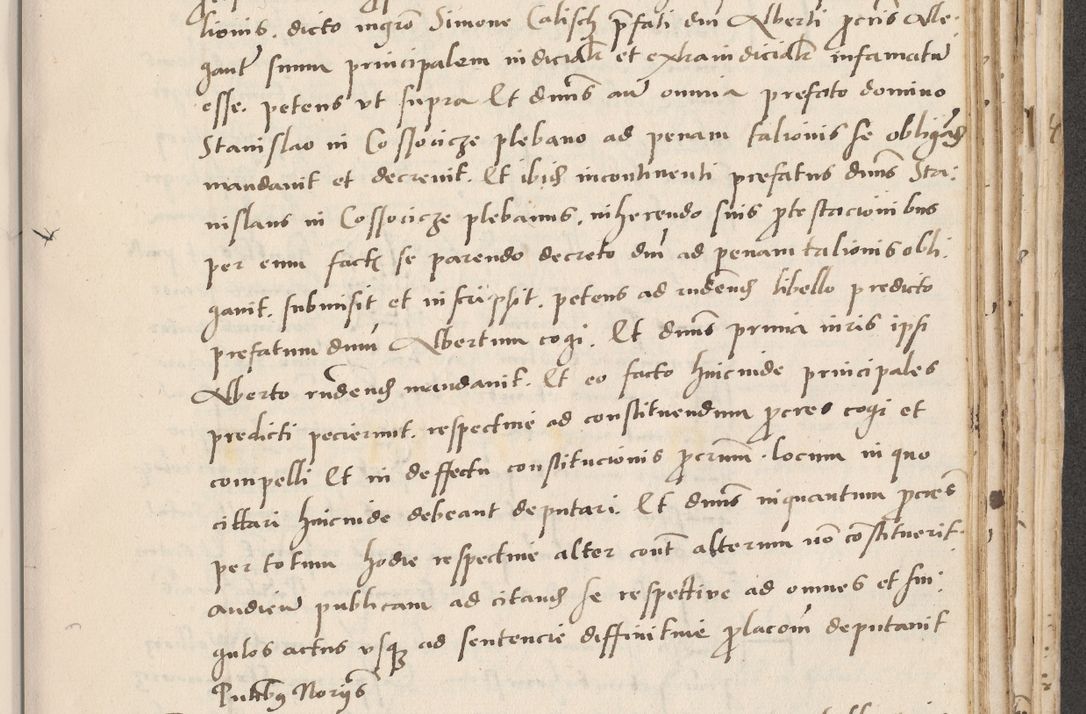 lionis. dicto mgro Simone Calisch prefati dni Alberti procris Alle:
gant suum principalem iudicialr et extraiudicialr infamatu
esse. petens ut supra Et dnus aut omnia prefato domino
Stanislao in Cossocicze plebano ad penam talionis se obligand
mandauit et decreuit. Et ibid incontinenti prefatus dnus Sta:
nislaus in Cossocicze plebanus, inherendo suis protestacionibus
per eum fact se parendo decreto dni ad penam talionis obli:
gauit, submisit et inscripsit. petens ad rndend libello predicto
prefatum dnm Albertum cogi. Et dnus primia iuris ipsi
Alberto rndend mandauit. Et eo facto hincinde principales
predicti pecierunt. respectiue ad constituendum procres cogi et
compelli Et in deffectu constitucionis procrum. locum in quo
cittari hincinde debeant deputari. Et dnus inquantum procres
per totum hodie respectiue alter cont alterum no constituerit.
audien publicam ad citand se respettive ad omnes et sin:
gulos actus vsq ad sentencie diffinitiue prolacom deputauit
Pntibus Norys